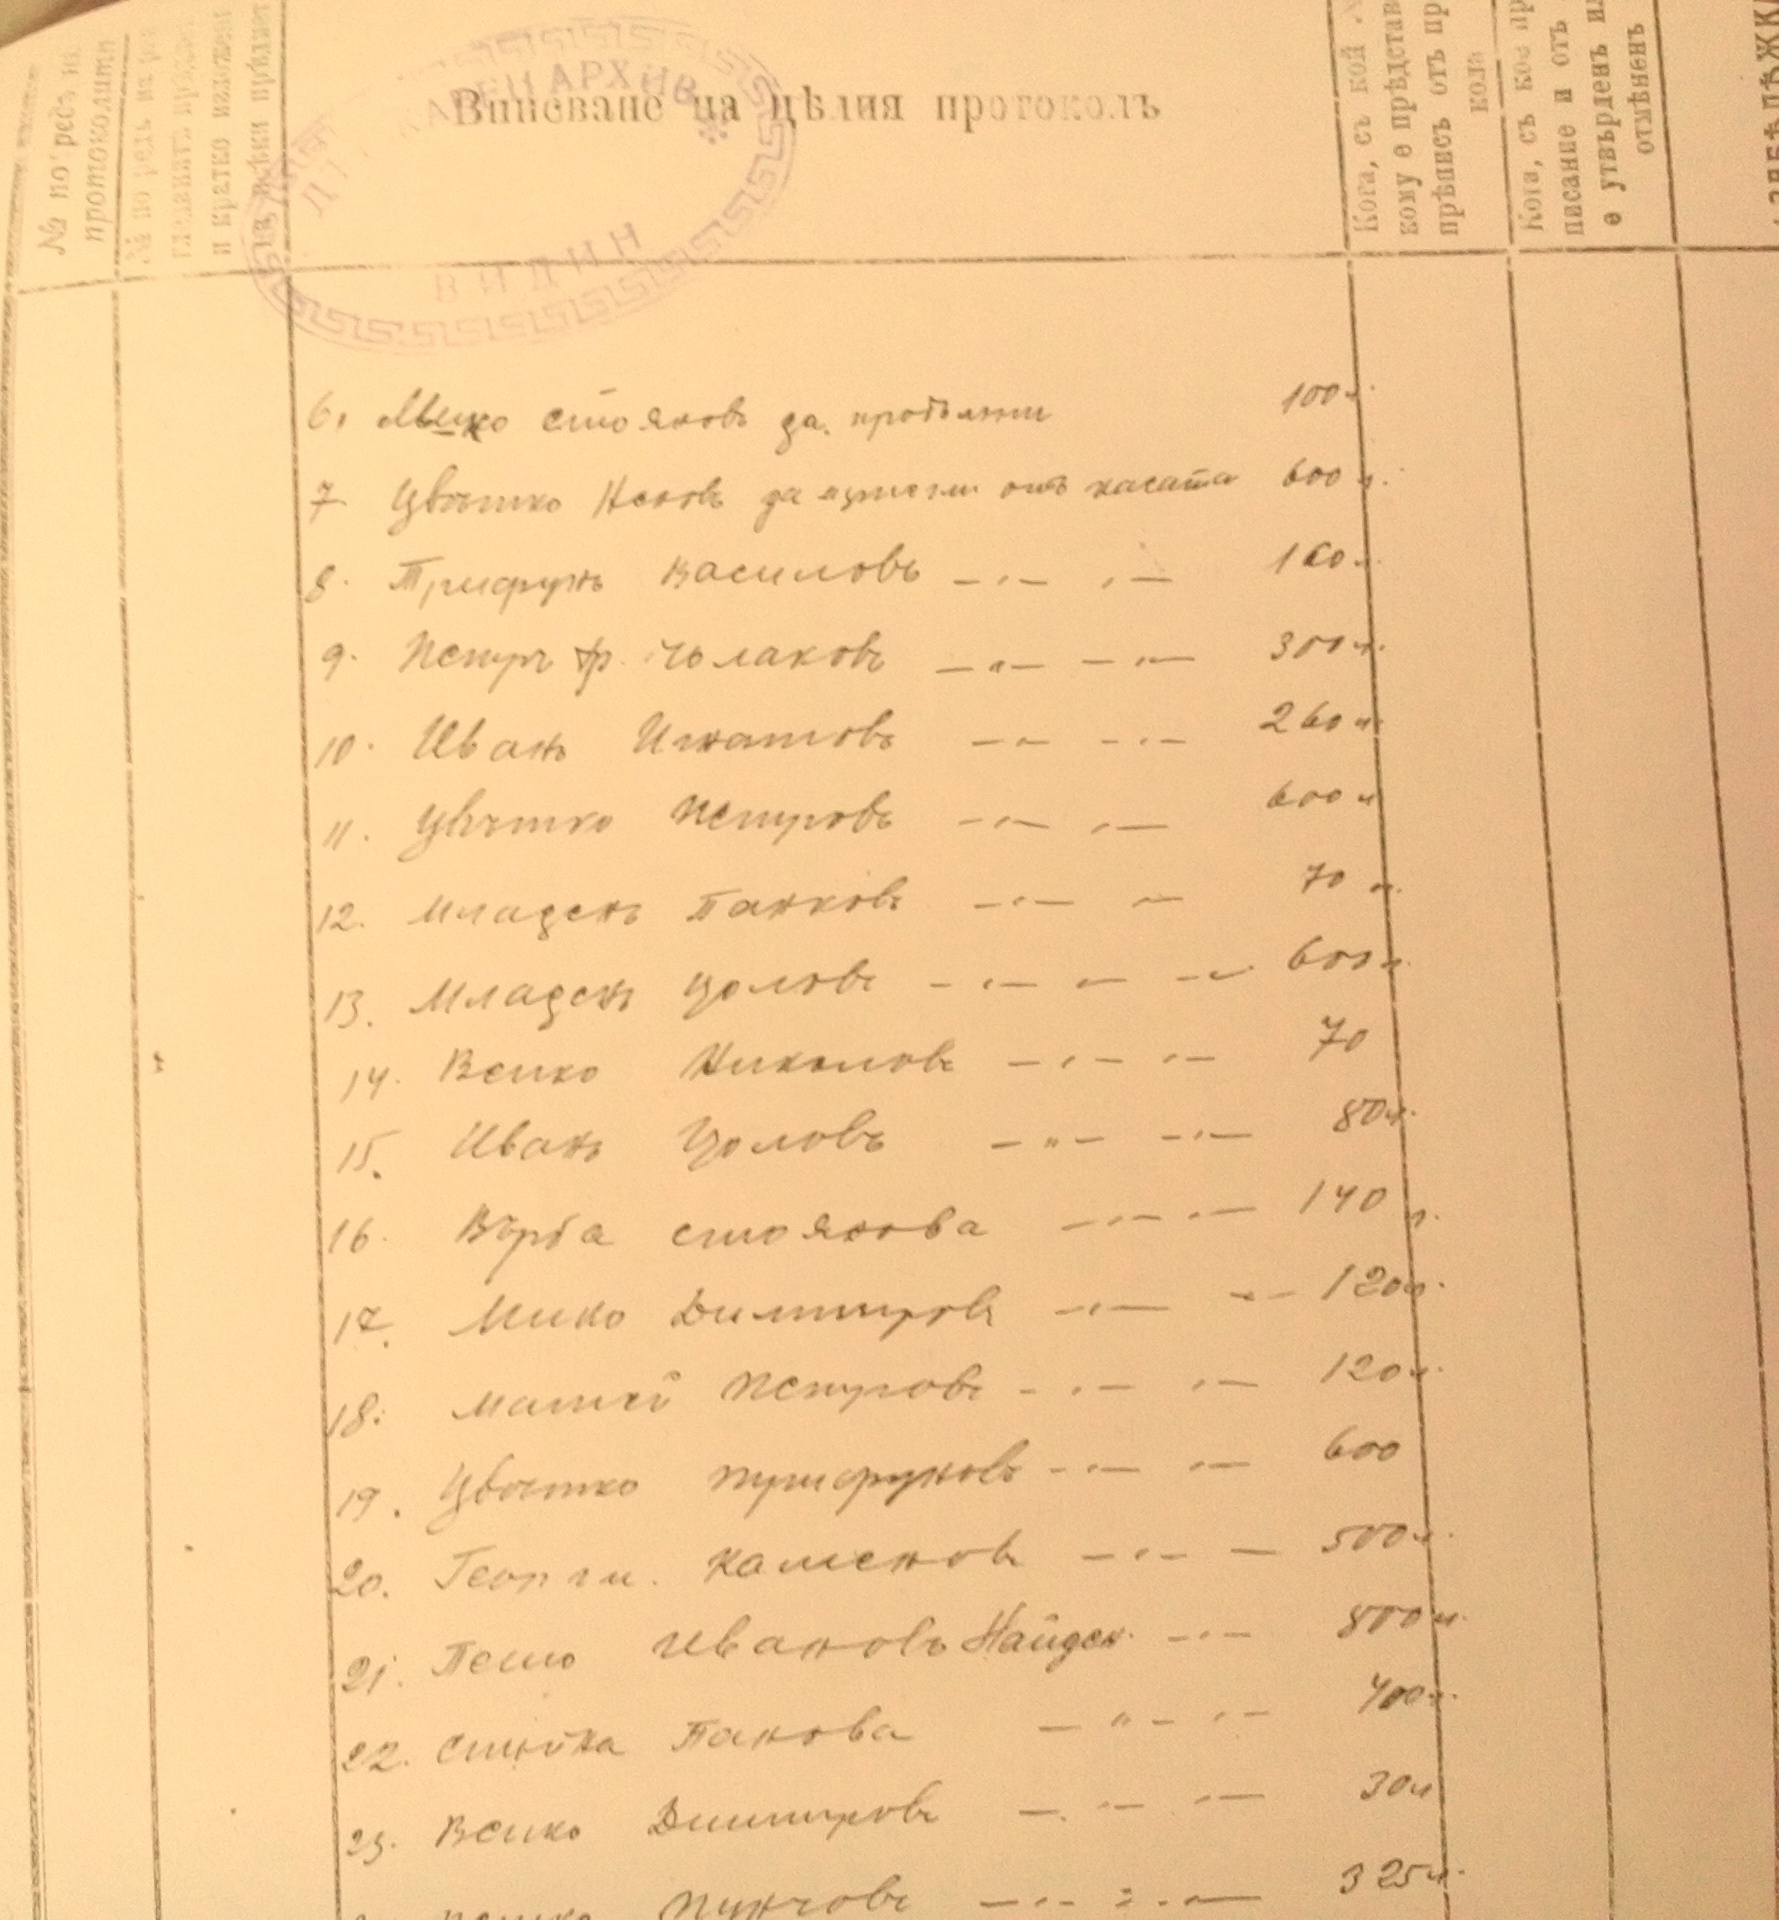 № по редъ на
протоколитѣ
№ по редъ на
и кратко изложен
Вписване на цѣлия протоколъ
АРХИВ
ВИДИН
Кога, съ кой №
кому е прѣдстав
прѣписъ отъ пр
кола
Кога, съ кое пр
писание и отъ
е утвърденъ ил
отмѣненъ
6. Мико Стояновъ да продължи 100 л.
7. Цвѣтко Неновъ да изтегли отъ касата 600 л.
8. Трифунъ Василовъ —〃— 〃— 160 л.
9. Петъръ Ф. Чолаковъ —〃— —〃— 300 л.
10. Иванъ Игнатовъ —〃— —〃— 260 л.
11. Цвѣтко Петровъ —〃— 〃— 600 л.
12. Младенъ Панковъ —〃— — 70 л.
13. Младенъ Цоловъ —〃— — — 600 л.
14. Велко Николовъ —〃— 〃— 70
15. Иванъ Цоловъ —〃— —〃— 80 л.
16. Върба Стоянова —〃— 〃— 140 л.
17. Мико Димитровъ —〃— — 120 л.
18. Матей Петровъ —〃— 〃— 120 л.
19. Цвѣтко Трифуновъ —〃— 〃— 600
20. Георги Каменовъ —〃— — 500 л.
21. Пешо Ивановъ Найден. —〃— 800 л.
22. Стойка Панова —〃— 〃— 400 л.
23. Велко Димитровъ — — 〃— 30 л.
Пунчовъ —〃— 〃— 325 л.